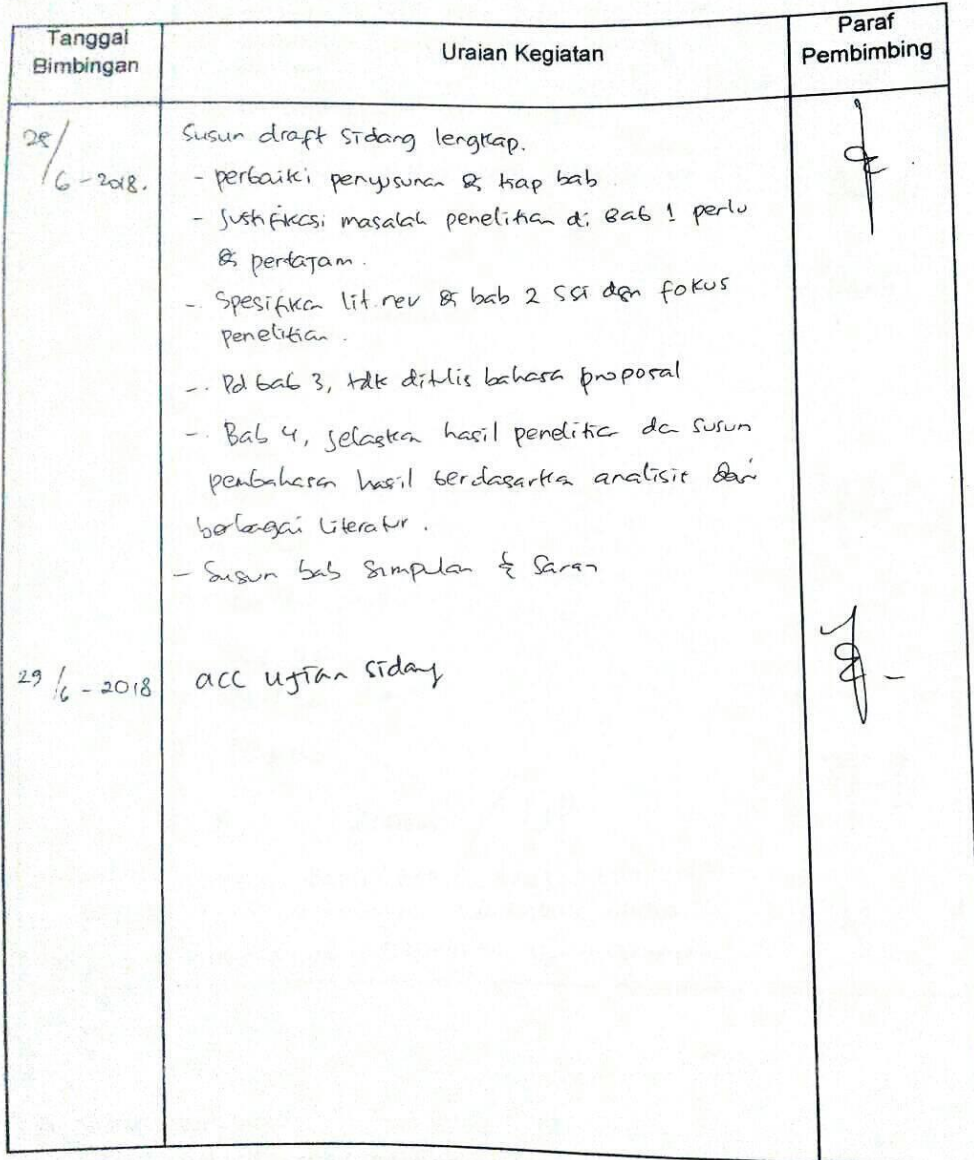 Tanggal Bimbingan
Uraian Kegiatan
Paraf Pembimbing
28/6-2018.
Susun draft sidang lengkap.
- perbaiki penyusunan & tiap bab
- Justifikasi masalah penelitian di Bab 1 perlu
& pertajam.
- Spesifikan lit. rev & bab 2 ssi dgn fokus
penelitian.
- Pd bab 3, tdk ditulis bahasa proposal
- Bab 4, jelaskan hasil penelitia da susun
pembahasan hasil berdasarkan analisis dari
berbagai literatur.
- Susun bab Simpulan & Saran
29/6-2018
acc ujian sidang